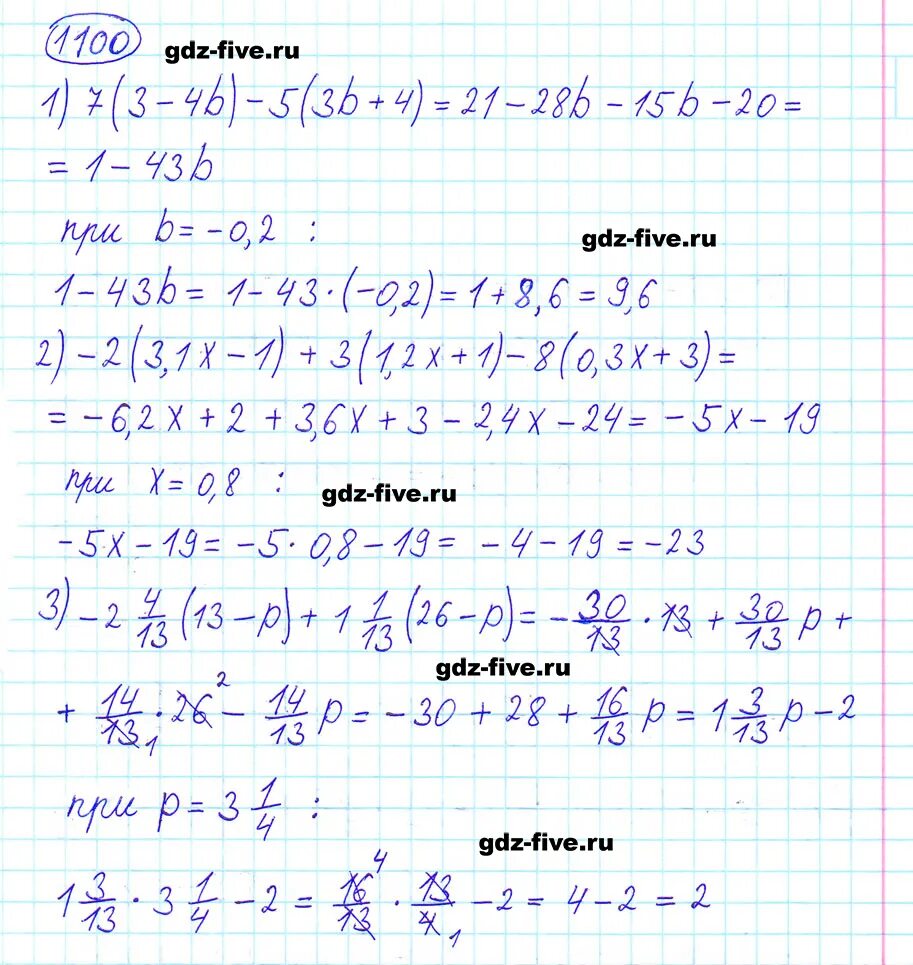 1100 gdz-five.ru
1) 7(3 - 4b) - 5(3b + 4) = 21 - 28b - 15b - 20 =
= 1 - 43b
при b = -0,2 :
gdz-five.ru
1 - 43b = 1 - 43·(-0,2) = 1 + 8,6 = 9,6
2) -2(3,1x - 1) + 3(1,2x + 1) - 8(0,3x + 3) =
= -6,2x + 2 + 3,6x + 3 - 2,4x - 24 = -5x - 19
при x = 0,8 :
gdz-five.ru
-5x - 19 = -5 · 0,8 - 19 = -4 - 19 = -23
3) -2 4/13 (13 - p) + 1 1/13 (26 - p) = -30/13 · 13 + 30/13 p +
gdz-five.ru
+ 14/13 1 · 26 2 - 14/13 p = -30 + 28 + 16/13 p = 1 3/13 p - 2
при p = 3 1/4 :
gdz-five.ru
1 3/13 · 3 1/4 - 2 = 16 4/13 · 13/4 1 - 2 = 4 - 2 = 2